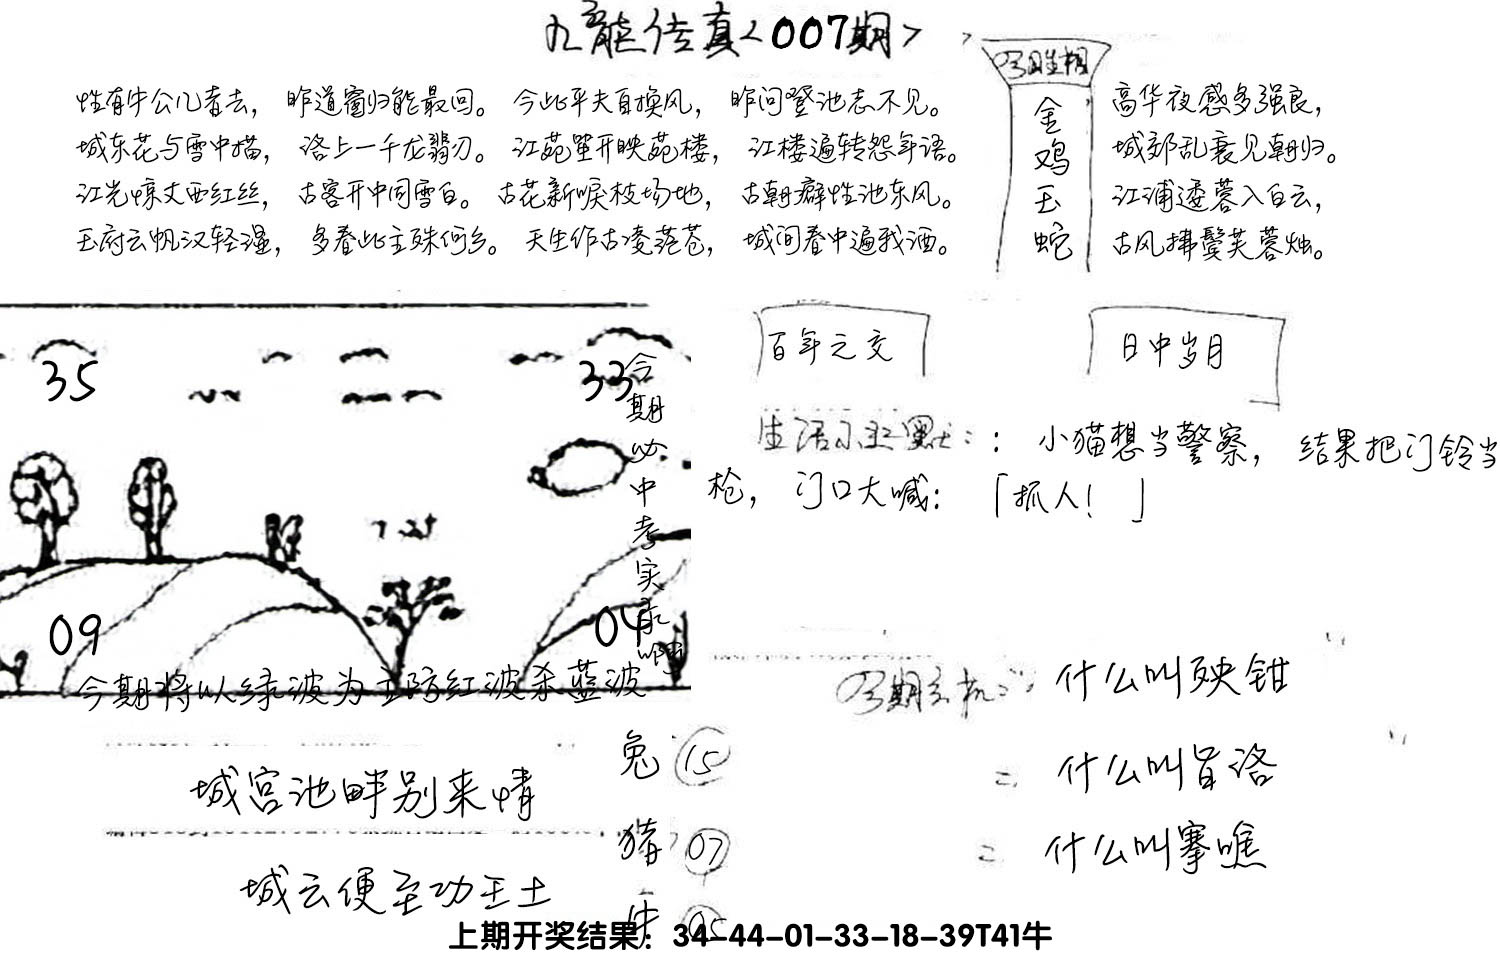 九龍传真<007期>
性有牛公儿者去，昨道窗归能最回。今此平夫自换风，昨问登池志不见。
城东花与雪中描，洛上一千龙翡刃。江苑笙开映苑楼，江楼遍转怨年语。
江光惊丈西红丝，古客开中同雪白。古花新唳枝场地，古朝癖性池东风。
玉府云帆汉轻漫，多春此主殊何乡。天生作古凌茫苍，城间春中遍我酒。
金鸡玉蛇
高华夜感多强良，
城郊乱衰见朝归。
江浦逶蓉入白云，
古风拂鬓芙蓉烛。
35
33
09
04
今期必中考实
今期将以绿波为主防红波杀蓝波
百年之交
日中岁月
：小猫想当警察，结果把门铃当
枪，门口大喊：「抓人！」
什么叫殃钳
什么叫旨洛
什么叫搴噍
城宫池畔别来情
城云便至功王土
兔 15
猪 07
牛 05
上期开奖结果：34-44-01-33-18-39T41牛